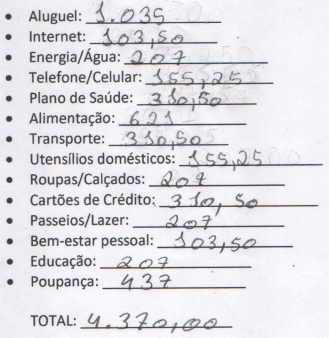 • Aluguel: 1.035
• Internet: 103,50
• Energia/Água: 207
• Telefone/Celular: 155,25
• Plano de Saúde: 310,50
• Alimentação: 621
• Transporte: 310,50
• Utensílios domésticos: 155,25
• Roupas/Calçados: 207
• Cartões de Crédito: 310,50
• Passeios/Lazer: 207
• Bem-estar pessoal: 103,50
• Educação: 207
• Poupança: 437
TOTAL: 4.370,00